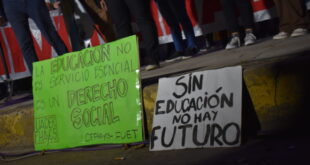 LA EDUCACIÓN NO
ES SERVICIO ESENCIAL
ES UN DERECHO
SOCIAL
SIN
EDUCACIÓN
NO HAY
FUTURO